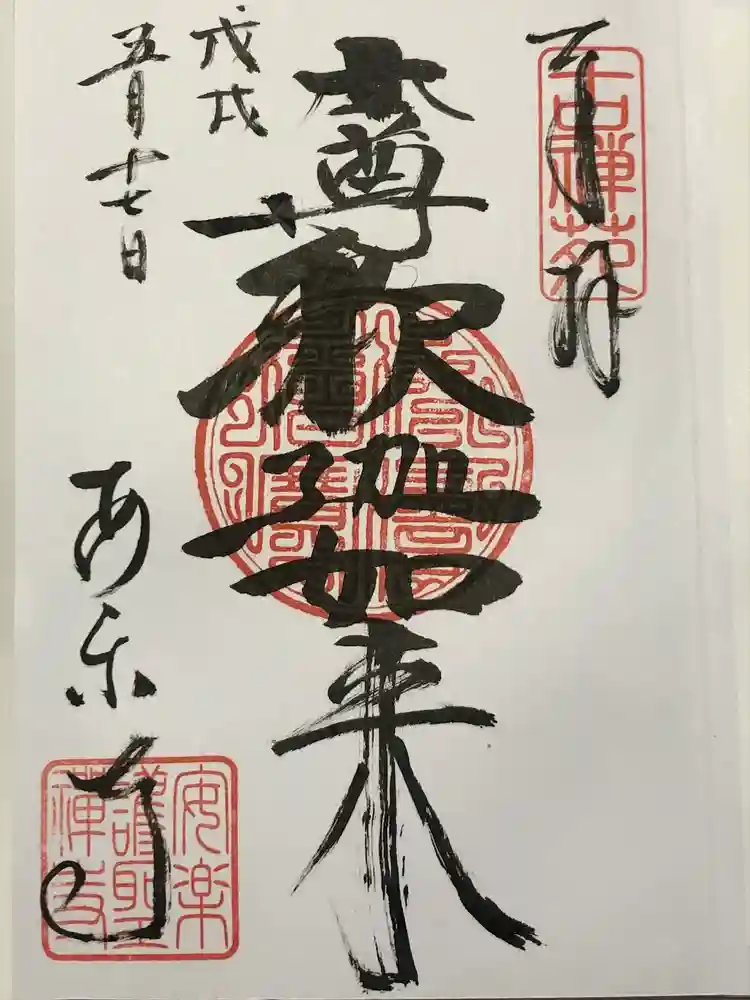 奉拝
千古禪苑
本尊
釈迦如来
戊戌
五月十七日
安楽寺
安楽
護聖
禪寺